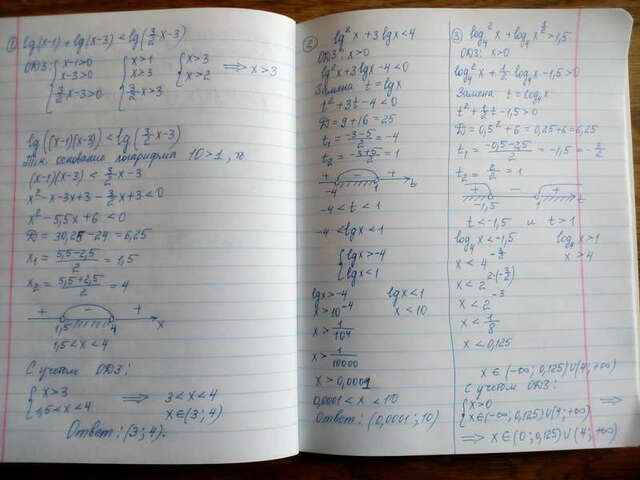 ① lg(x-1) + lg(x-3) < lg(3/2 x-3)
ОДЗ: { x-1>0 { x>1 { x>3 ⟹ x>3
x-3>0 x>3 x>2
3/2 x-3>0 3/2 x>3
lg((x-1)(x-3)) < lg(3/2 x-3)
Т.к. основание логарифма 10>1, то
(x-1)(x-3) < 3/2 x-3
x²-x-3x+3-3/2 x+3<0
x²-5,5x+6<0
D = 30,25-24=6,25
x₁ = (5,5-2,5)/2 = 1,5
x₂ = (5,5+2,5)/2 = 4
+ - +
1,5 4 x
1,5 < x < 4
С учетом ОДЗ:
{ x>3 ⟹ 3<x<4
1,5<x<4 x∈(3;4)
Ответ: (3;4).
② lg²x + 3lgx < 4
ОДЗ: x>0
lg²x+3lgx-4<0
Замена t=lgx
t²+3t-4<0
D=9+16=25
t₁ = (-3-5)/2 = -4
t₂ = (-3+5)/2 = 1
+ - +
-4 1 t
-4 < t < 1
-4 < lgx < 1
{ lgx>-4
lgx<1
lgx>-4 lgx<1
x>10⁻⁴ x<10
x > 1/10⁴
x > 1/10000
x > 0,0001
0,0001 < x < 10
Ответ: (0,0001;10)
③ log₄²x + log₄x^(1/2) > 1,5
ОДЗ: x>0
log₄²x + 1/2·log₄x-1,5>0
Замена t = log₄x
t²+1/2 t-1,5>0
D = 0,5²+6=0,25+6=6,25
t₁ = (-0,5-2,5)/2 = -1,5 = -3/2
t₂ = 2/2 = 1
+ - +
-1,5 1 t
t<-1,5 и t>1
log₄x<-1,5 log₄x>1
x < 4^(-3/2) x > 4
x < 2^(2·(-3/2))
x < 2⁻³
x < 1/8
x < 0,125
x∈(-∞;0,125)∪(4;+∞)
С учетом ОДЗ:
{ x>0 ⟹
x∈(-∞;0,125)∪(4;+∞)
⟹ x∈(0;0,125)∪(4;+∞)